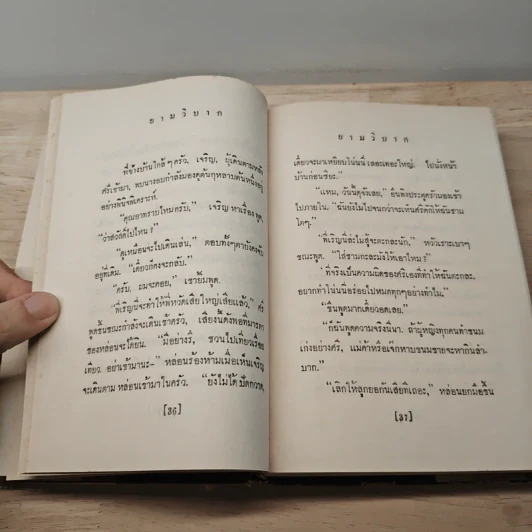 ยามวิบาก
ที่ข้างบ้านใกล้ๆครัว, เจริญ, ผู้เดินตามหลัง
ศรีเข้ามา, พบนางอบกำลังมองดูต้นกุหลาบต้นหนึ่งอยู่
อย่างพินิจพิเคราะห์.
"คุณอาทราบไหมครับ," เจริญหาเรื่องพูด,
"ว่าสวัสดิ์ไปไหน ?"
"ดูเหมือนจะไปเดินเล่น," ตอบทั้งๆตายังคงจับ
อยู่ที่เดิม. "เดี๋ยวก็คงจะกลับ."
"ครับ, ผมจะคอย," เขายิ้มพูด.
"พี่เจริญนี่จะทำให้พี่หวัดเสียใหญ่เสียแล้ว," ศรี
พูดขึ้นขณะกำลังจะเดินเข้าครัว, เสียงนั้นดังพอที่มารดา
ของหล่อนจะได้ยิน. "มีอย่างรึ, ชวนไปเที่ยวเรื่อย
เดียว. อย่าเข้ามานะ-" หล่อนร้องห้ามเมื่อเห็นเจริญ
จะเดินตามหล่อนเข้ามาในครัว. "ยังไม่ได้ปัดกวาด,
[36]
ยามวิบาก
เดี๋ยวจะมาเหยียบโน่นนี่เลอะเทอะใหญ่. ไปนั่งหน้า
บ้านก่อนซิยะ."
"แหม, วันนี้ดุจังเลย," ยืนพิงประตูครัวมองเข้า
ไปภายใน. "ฉันยังไม่ไปจนกว่าจะเห็นศรีตักให้ฉันชาม
โตๆ."
"พี่เจริญนี่ละโมสู้จะตะกละนัก," หัวเราะเบาๆ
ขณะพูด. "ใส่ชามกะละมังให้เอาไหม ?"
"ก็จริงเป็นความผิดของศรีเองที่ทำให้ฉันตะกละ.
อยากทำโน่นนี่อร่อยไปหมดทุกๆอย่างทำไม."
"ขี้นพูดมากเดี๋ยวอดเลย."
"ก็ฉันพูดความจริงนี่นา. ถ้าผู้หญิงทุกคนทำขนม
เก่งอย่างศรี, แม่ค้าหรือเจ๊กหาบขนมขายจะพากันลำ-
บาก."
"เลิกให้ลูกยอกันเสียทีเถอะ," หล่อนยกมือขึ้น
[37]